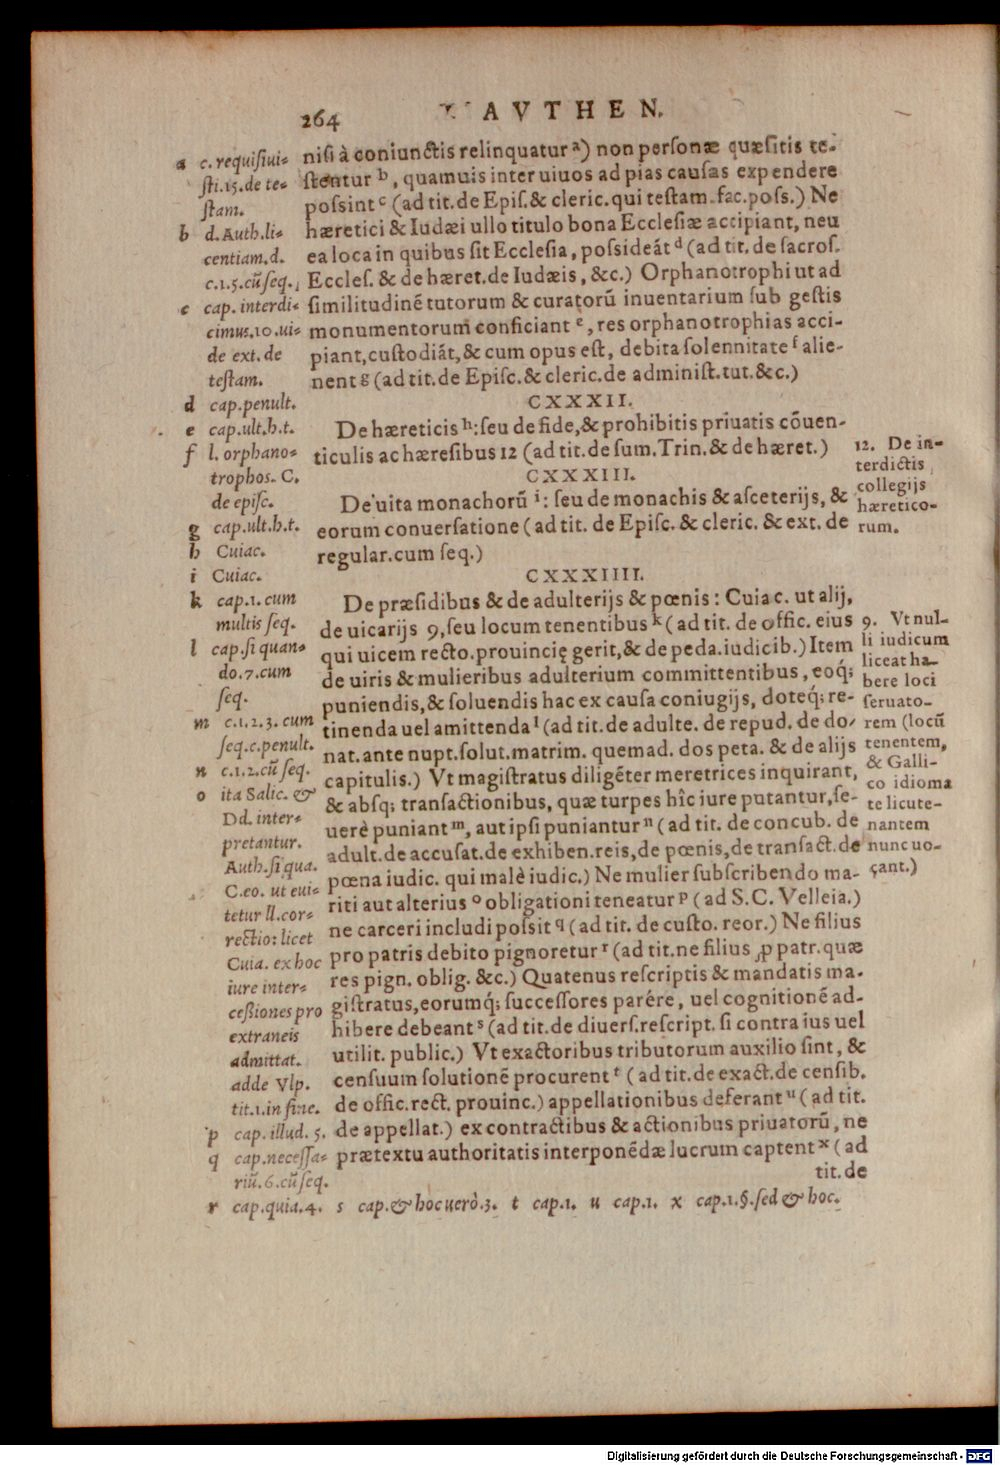 264 AVTHEN.
niſi à coniunctis relinquatur ᵃ) non perſonæ quæſitis te-
ſtentur ᵇ, quamuis inter uiuos ad pias cauſas expendere
poſsint ᶜ (ad tit. de Epiſ. & cleric. qui teſtam. fac. poſs.) Ne
hæretici & Iudæi ullo titulo bona Eccleſiæ accipiant, neu
ea loca in quibus ſit Eccleſia, poſsideát ᵈ (ad tit. de ſacroſ.
Eccleſ. & de hæret. de Iudæis, &c.) Orphanotrophi ut ad
ſimilitudinē tutorum & curatorū inuentarium ſub geſtis
monumentorum conficiant ᵉ, res orphanotrophias acci-
piant, cuſtodiát, & cum opus eſt, debita ſolennitate ᶠ alie-
nent ᵍ (ad tit. de Epiſc. & cleric. de adminiſt. tut. &c.)
CXXXII.
De hæreticis ʰ: ſeu de fide, & prohibitis priuatis cōuen-
ticulis ac hæreſibus 12 (ad tit. de ſum. Trin. & de hæret.)
CXXXIII.
De uita monachorū ⁱ: ſeu de monachis & aſceterijs, &
eorum conuerſatione (ad tit. de Epiſc. & cleric. & ext. de
regular. cum ſeq.)
CXXXIIII.
De præſidibus & de adulterijs & pœnis: Cuiac. ut alij,
de uicarijs 9, ſeu locum tenentibus ᵏ (ad tit. de offic. eius
qui uicem recto. prouincię gerit, & de peda. iudicib.) Itém
de uiris & mulieribus adulterium committentibus, eoq́;
puniendis, & ſoluendis hac ex cauſa coniugijs, doteq́; re-
tinenda uel amittenda ˡ (ad tit. de adulte. de repud. de do-
nat. ante nupt. ſolut. matrim. quemad. dos peta. & de alijs
capitulis.) Vt magiſtratus diligēter meretrices inquirant,
& abſq; tranſactionibus, quæ turpes hîc iure putantur, ſe-
uerè puniant ᵐ, aut ipſi puniantur ⁿ (ad tit. de concub. de
adult. de accuſat. de exhiben. reis, de pœnis, de tranſact. de
pœna iudic. qui malè iudic.) Ne mulier ſubſcribendo ma-
riti aut alterius ᵒ obligationi teneatur ᵖ (ad S. C. Velleia.)
ne carceri includi poſsit q (ad tit. de cuſto. reor.) Ne filius
pro patris debito pignoretur ʳ (ad tit. ne filius ꝓ patr. quæ
res pign. oblig. &c.) Quatenus reſcriptis & mandatis ma-
giſtratus, eorumq́; ſucceſſores parére, uel cognitionē ad-
hibere debeant ˢ (ad tit. de diuerſ. reſcript. ſi contra ius uel
utilit. public.) Vt exactoribus tributorum auxilio ſint, &
cenſuum ſolutionē procurent ᵗ (ad tit. de exact. de cenſib.
de offic. rect. prouinc.) appellationibus deferant ᵘ (ad tit.
de appellat.) ex contractibus & actionibus priuatorū, ne
prætextu authoritatis interponēdæ lucrum captent ˣ (ad
tit. de
a c. requiſiui-
ſti. 15. de te-
ſtam.
b d. Auth. li-
centiam. d.
c. 1. 5. cū ſeq.
c cap. interdi-
cimus. 10. ui-
de ext. de
teſtam.
d cap. penult.
e cap. ult. h. t.
f l. orphano-
trophos. C.
de epiſc.
g cap. ult. h. t.
h Cuiac.
i Cuiac.
k cap. 1. cum
multis ſeq.
l cap. ſi quan-
do. 7. cum
ſeq.
m c. 1. 2. 3. cum
ſeq. c. penult.
n c. 1. 2. cū ſeq.
o ita Salic. &
Dd. inter-
pretantur.
Auth. ſi qua.
C. eo. ut eui-
tetur ll. cor-
rectio: licet
Cuia. ex hoc
iure inter-
ceßiones pro
extraneis
admittat.
adde Vlp.
tit. 1. in fine.
p cap. illud. 5.
q cap. neceſſa-
riū. 6. cū ſeq.
r cap. quia. 4. s cap. & hoc uerò. 3. t cap. 1. u cap. 1. x cap. 1. §. ſed & hoc.
12. De in-
terdictis
collegijs
hæretico-
rum.
9. Vt nul-
li iudicum
liceat ha-
bere loci
ſeruato-
rem (locū
tenentem,
& Galli-
co idioma
te licute-
nantem
nunc uo-
çant.)
Digitalisierung gefördert durch die Deutsche Forschungsgemeinschaft - DFG